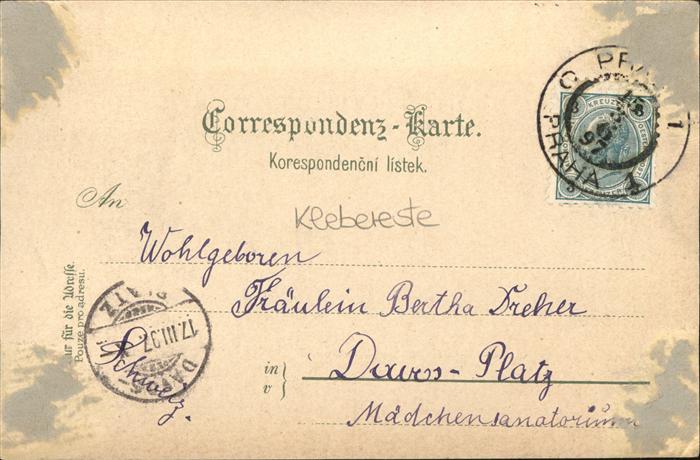 Correspondenz-Karte.
Korespondenční lístek.
An
Klebereste
Wohlgeboren
Fräulein Bertha Dreher
in
v
Davos-Platz
Mädchensanatorium
Schweiz.
ur für die Adresse.
Pouze pro adresu.
17.III.97
DAVOS
PLATZ
PRAHA
97
1
KREUZER
3